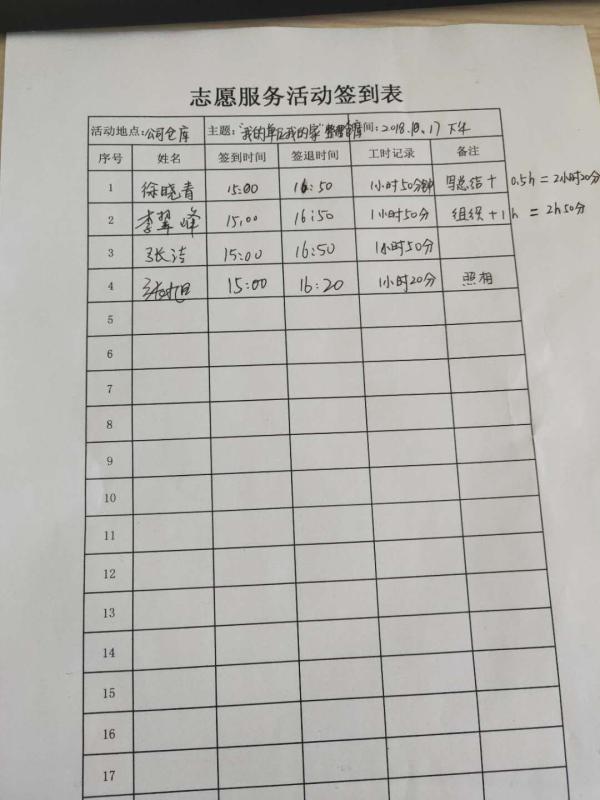 志愿服务活动签到表
活动地点:公司仓库 主题:"我的单位我的家" 时间:2018.10.17 下午
序号 姓名 签到时间 签退时间 工时记录 备注
1 徐晓青 15:00 16:50 1小时50分钟 写总结+ 0.5h=2小时20分
2 李翠峰 15:00 16:50 1小时50分 组织+1h=2h50分
3 张洁 15:00 16:50 1小时50分
4 张旭 15:00 16:20 1小时20分 照相
5
6
7
8
9
10
11
12
13
14
15
16
17